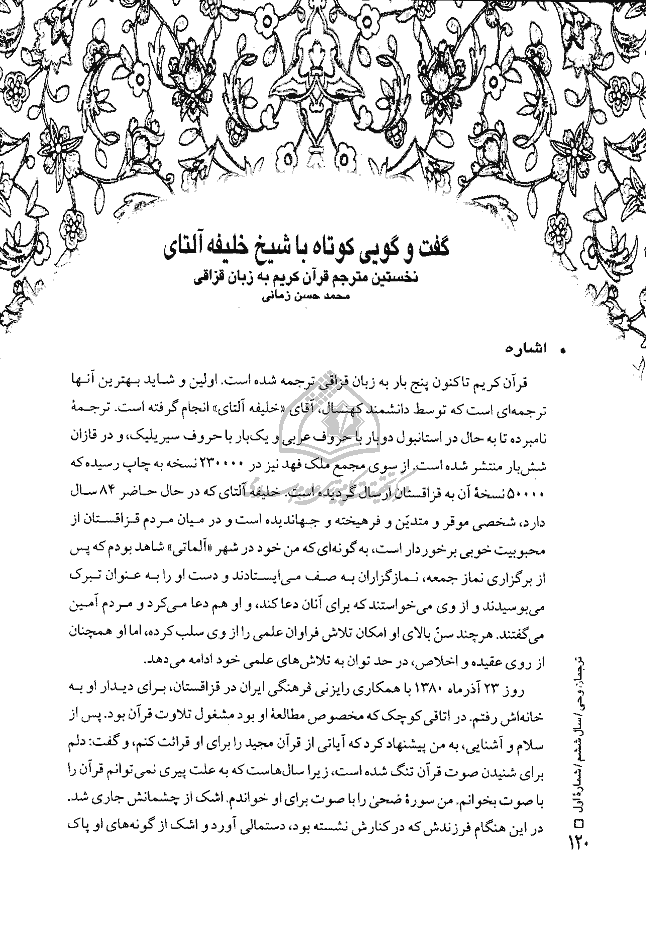 گفت و گویی کوتاه با شیخ خلیفه آلتای
نخستین مترجم قرآن کریم به زبان قزاقی
محمد حسن زمانی
• اشاره
قرآن کریم تاکنون پنج بار به زبان قزاقی ترجمه شده است. اولین و شاید بهترین آنها
ترجمه‌ای است که توسط دانشمند کهنسال، آقای «خلیفه آلتای» انجام گرفته است. ترجمهٔ
نامبرده تا به حال در استانبول دوبار با حروف عربی و یک‌بار با حروف سیریلیک، و در قازان
شش‌بار منتشر شده است. از سوی مجمع ملک فهد نیز در ۲۳۰۰۰۰ نسخه به چاپ رسیده که
۵۰۰۰۰ نسخهٔ آن به قزاقستان ارسال گردیده است. خلیفه آلتای که در حال حاضر ۸۴ سال
دارد، شخصی موقر و متدیّن و فرهیخته و جهاندیده است و در میان مردم قزاقستان از
محبوبیت خوبی برخوردار است، به گونه‌ای که من خود در شهر «آلماتی» شاهد بودم که پس
از برگزاری نماز جمعه، نمازگزاران به صف می‌ایستادند و دست او را به عنوان تبرک
می‌بوسیدند و از وی می‌خواستند که برای آنان دعا کند، و او هم دعا می‌کرد و مردم آمین
می‌گفتند. هرچند سنّ بالای او امکان تلاش فراوان علمی را از وی سلب کرده، اما او همچنان
از روی عقیده و اخلاص، در حد توان به تلاش‌های علمی خود ادامه می‌دهد.
روز ۲۳ آذرماه ۱۳۸۰ با همکاری رایزنی فرهنگی ایران در قزاقستان، برای دیدار او به
خانه‌اش رفتم. در اتاقی کوچک که مخصوص مطالعهٔ او بود مشغول تلاوت قرآن بود. پس از
سلام و آشنایی، به من پیشنهاد کرد که آیاتی از قرآن مجید را برای او قرائت کنم، و گفت: دلم
برای شنیدن صوت قرآن تنگ شده است، زیرا سال‌هاست که به علت پیری نمی‌توانم قرآن را
با صوت بخوانم. من سورهٔ ضحیٰ را با صوت برای او خواندم. اشک از چشمانش جاری شد.
در این هنگام فرزندش که در کنارش نشسته بود، دستمالی آورد و اشک از گونه‌های او پاک
ترجمان وحی / سال ششم / شمارهٔ اول □
۱۲۰